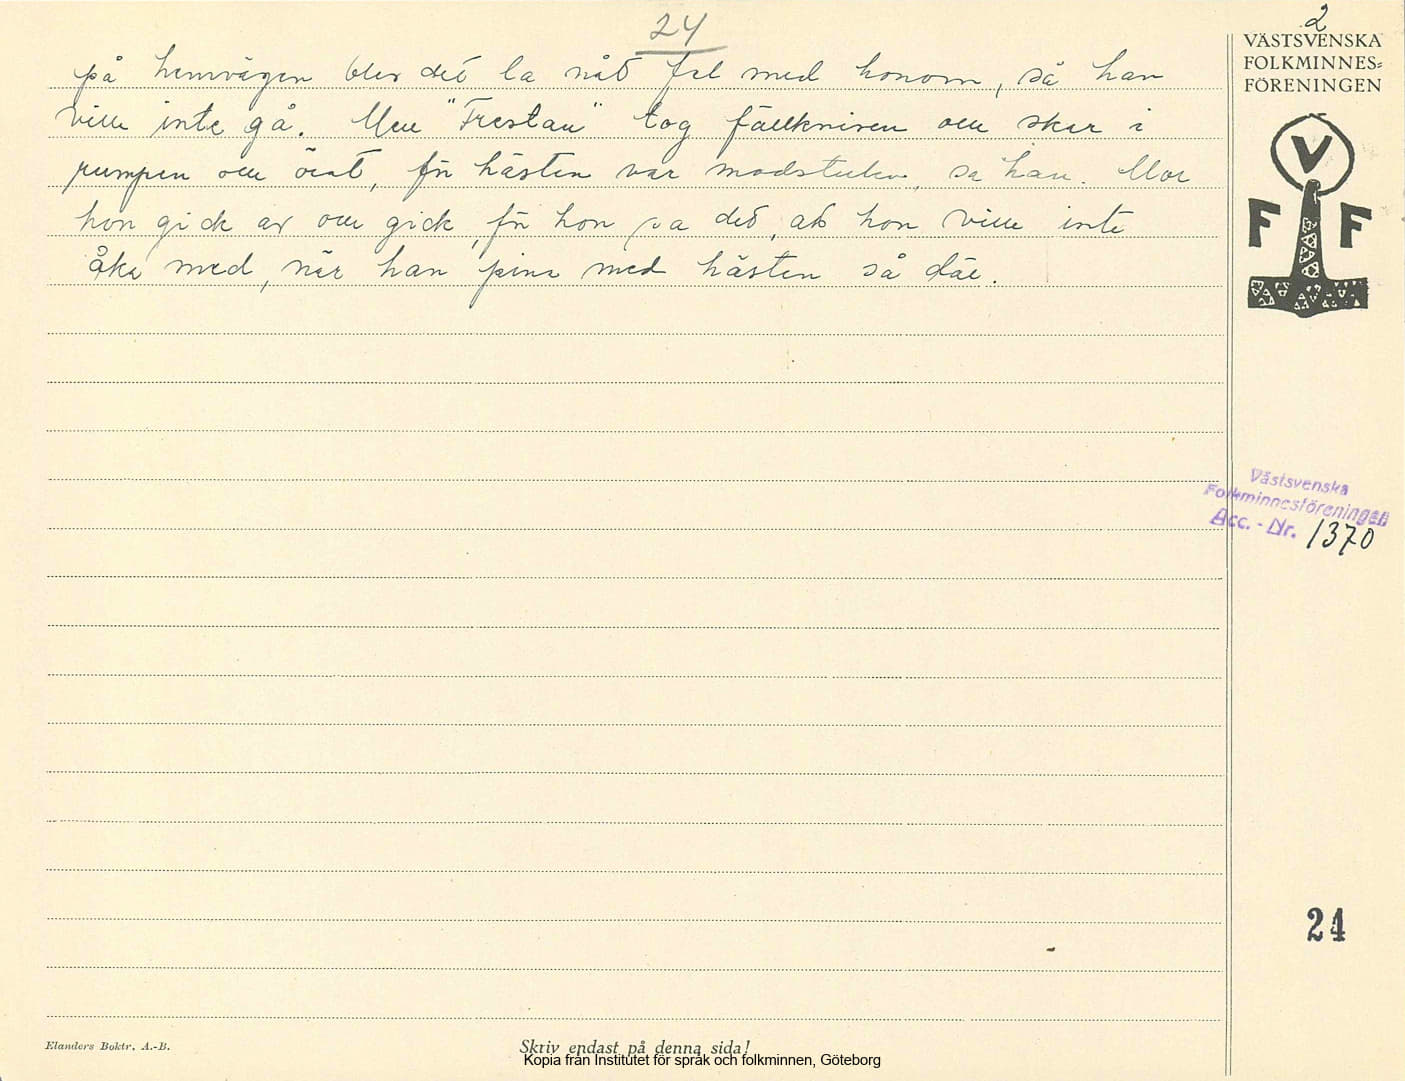 24
2
på hemvägen blev det la nåt fel med honom, så han
ville inte gå. Men "Trestau" tog fällkniven och skar i
rumpen och örat, för hästen var modstulen, sa han. Mor
hon gick av och gick, för hon sa det, att hon ville inte
åka med, när han pina med hästen så där.
VÄSTSVENSKA
FOLKMINNES-
FÖRENINGEN
V
F F
Västsvenska
Folkminnesföreningen
Acc. - Nr. 1370
24
Elanders Boktr. A.-B.
Skriv endast på denna sida!
Kopia från Institutet för språk och folkminnen, Göteborg